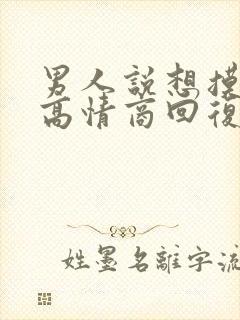 男人説想摸
高情商回復
姓墨名離字流